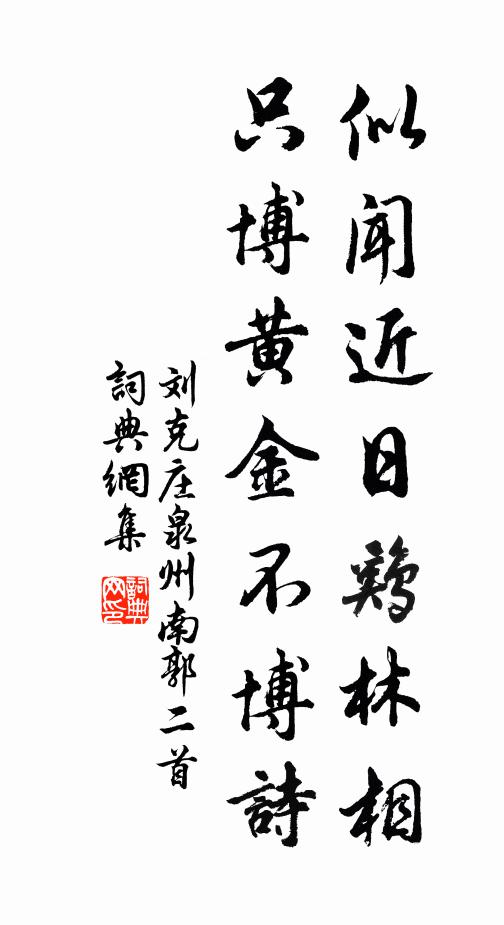 似闻近日鷄林相
只博黄金不博詩
刘克庄泉州南郭二首
詞典網集
詞典網印